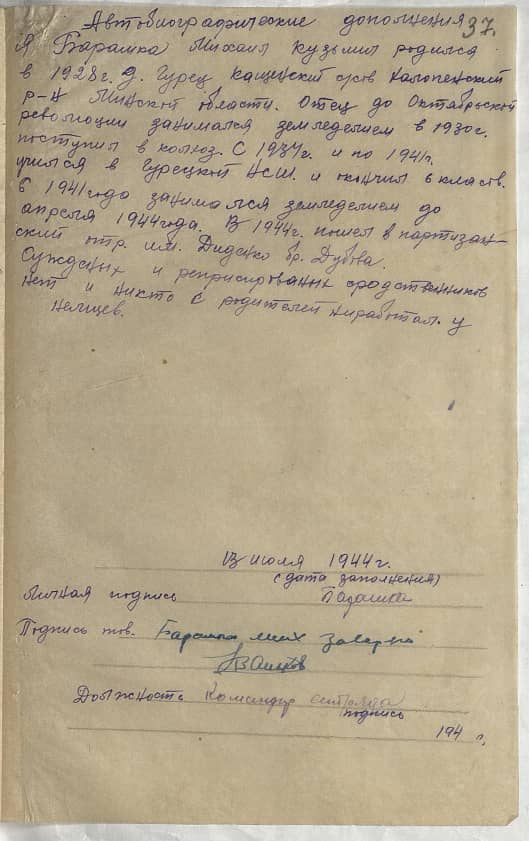 Автобиографические дополнения 37.
Я Барашка Михаил Кузьмич родился
в 1928г. д. Гурец Кащинский с/сов Холопенский
р-н Минской области. Отец до Октябрьской
революции занимался земледелием в 1930г.
поступил в колхоз. С 1934г. и по 1941г.
учился в Гурецкой НСШ. и окончил 6 классв.
в 1941года занимался земледелием до
апреля 1944года. В 1944г. пошел в партизан-
ский отр. им. Диденко бр. Дубова.
Сужденых и реприсированых сродственников
нет и никто с родителей ниработал. у
немцев.
13 июля 1944г.
(дата заполнения)
Личная подпись Барашка
Подпись тов. Барашка Мих заверяю
Должность Командир отряда
подпись
194 г.